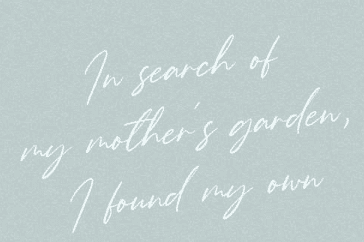 In search of
my mother's garden,
I found my own